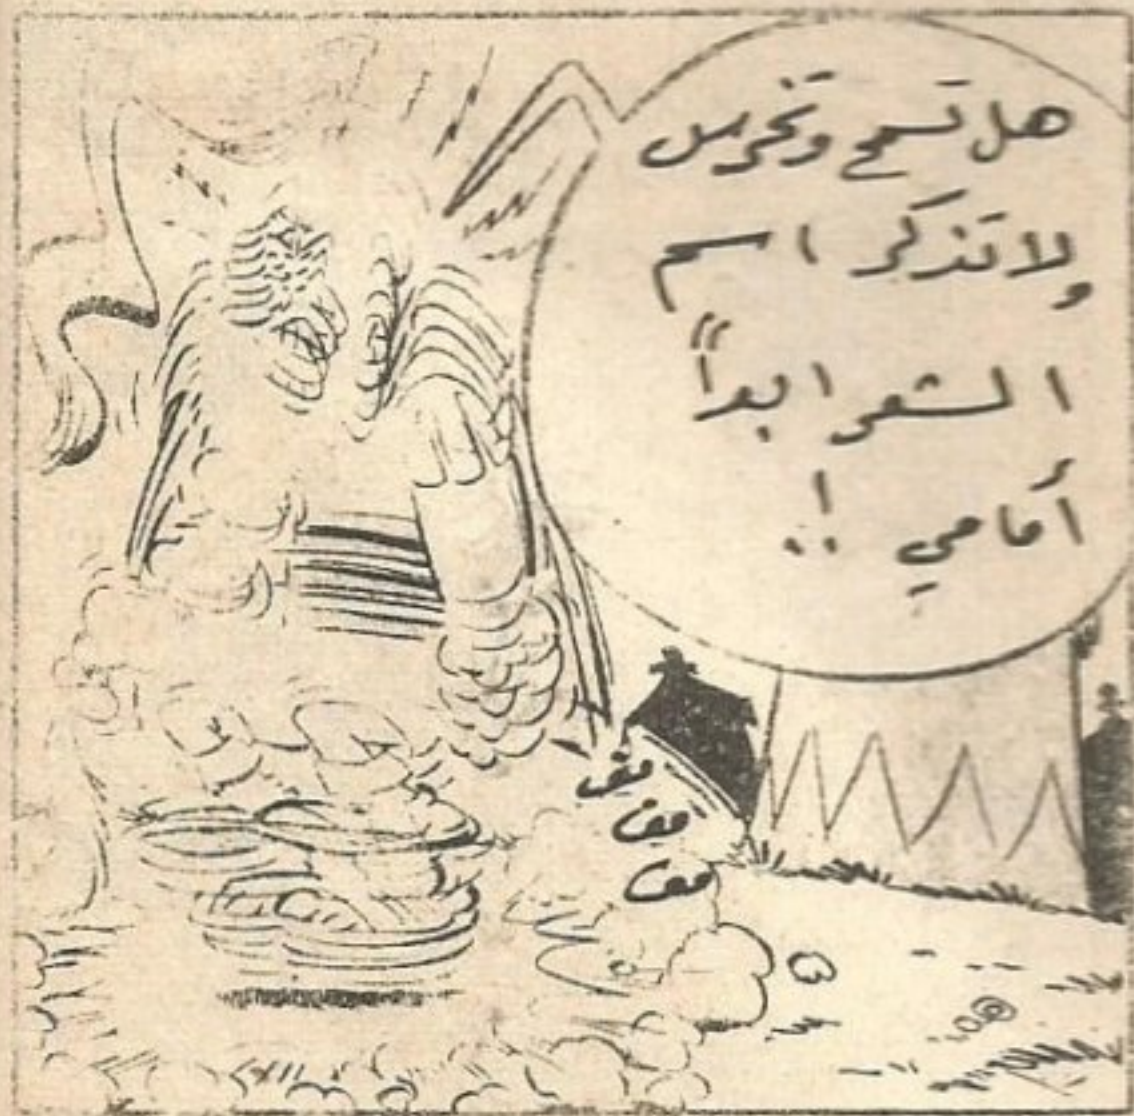 هل تسمح وتخرس
ولا تذكر اسم
الشعر ابداً
أمامي !..